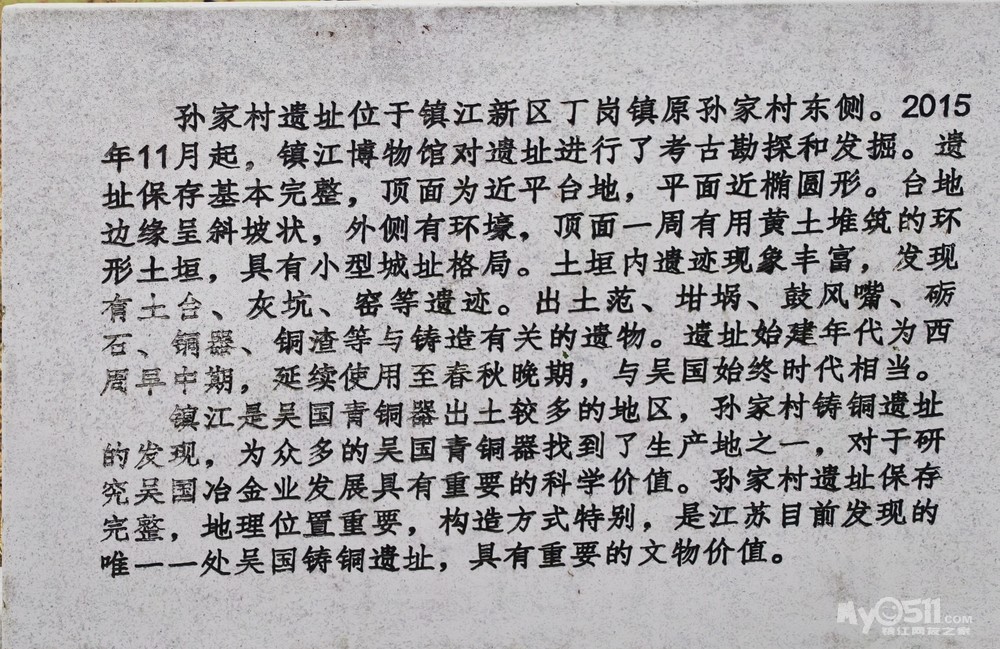 孙家村遗址位于镇江新区丁岗镇原孙家村东侧。2015
年11月起，镇江博物馆对遗址进行了考古勘探和发掘。遗
址保存基本完整，顶面为近平台地，平面近椭圆形。台地
边缘呈斜坡状，外侧有环壕，顶面一周有用黄土堆筑的环
形土垣，具有小型城址格局。土垣内遗迹现象丰富，发现
有土台、灰坑、窑等遗迹。出土范、坩埚、鼓风嘴、砺
石、铜器、铜渣等与铸造有关的遗物。遗址始建年代为西
周早中期，延续使用至春秋晚期，与吴国始终时代相当。
镇江是吴国青铜器出土较多的地区，孙家村铸铜遗址
的发现，为众多的吴国青铜器找到了生产地之一，对于研
究吴国冶金业发展具有重要的科学价值。孙家村遗址保存
完整，地理位置重要，构造方式特别，是江苏目前发现的
唯一一处吴国铸铜遗址，具有重要的文物价值。
My0511.COM
镇江网友之家